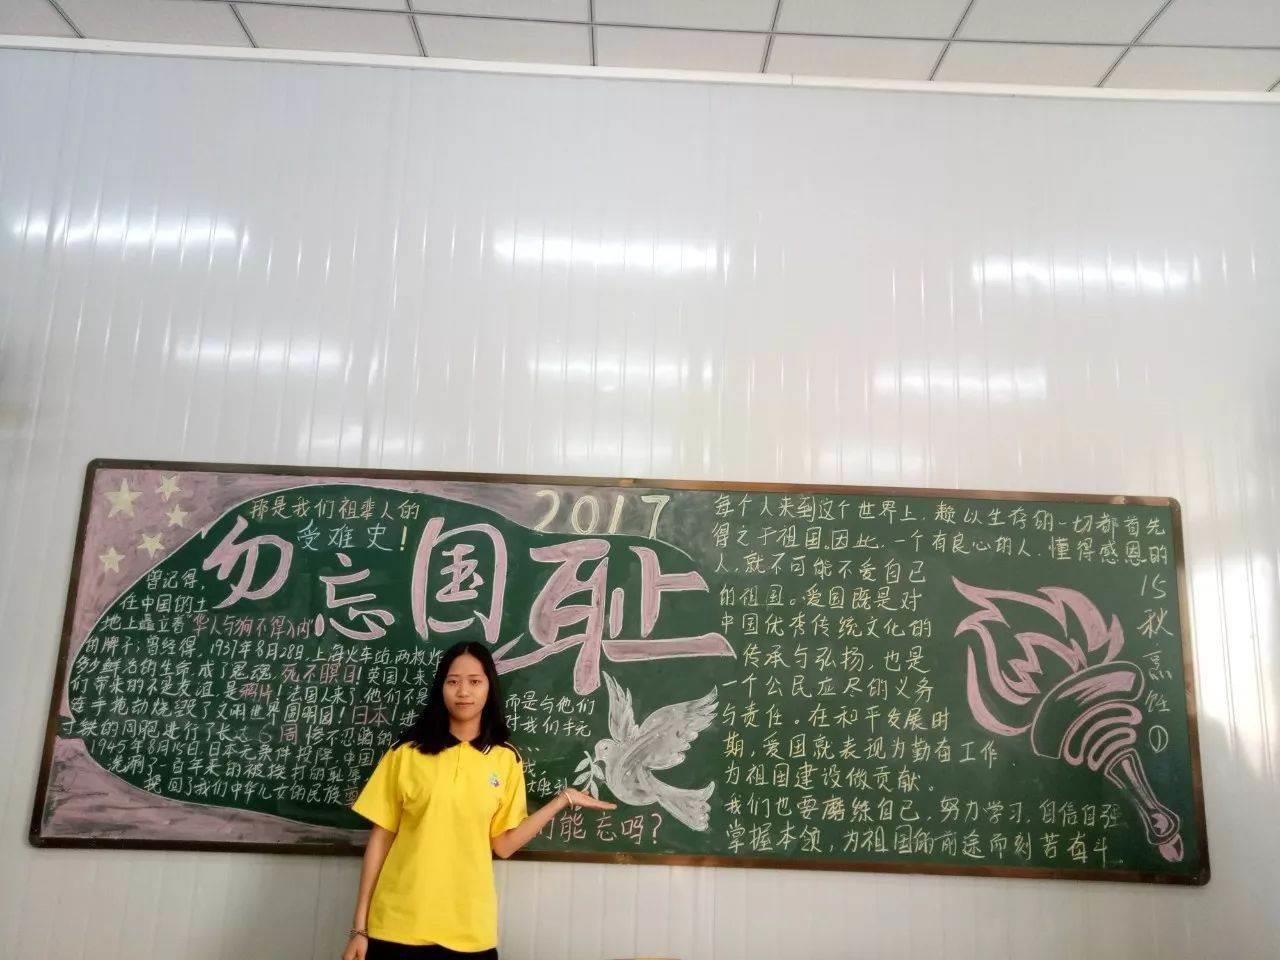 2017
那是我们祖辈人的
受难史!
勿忘国耻
曾记得,
在中国的土
地上矗立着"华人与狗不得入内"
的牌子;曾经得,1937年8月28日,上海火车站,两枚炸
多少鲜活的生命成了冤魂,死不瞑目!英国人来
们带来的不是友谊,是鸦片!法国人来了他们不是
而是与他们
连手抢劫烧毁了文明世界圆明园!日本
对我们手无
寸铁的同胞进行了长达6周惨不忍睹的
1945年8月15日,日本无条件投降,中国
洗刷了一百年来的被挨打的耻辱
挽回了我们中华儿女的民族尊
能忘吗?
每个人来到这个世界上,赖以生存的一切都首先
得之于祖国。因此,一个有良心的人,懂得感恩的
人,就不可能不爱自己
的祖国。爱国既是对
中国优秀传统文化的
传承与弘扬,也是
一个公民应尽的义务
与责任。在和平发展时
期,爱国就表现为勤奋工作
为祖国建设做贡献。
我们也要磨练自己,努力学习,自信自强
掌握本领,为祖国的前途而刻苦奋斗
15秋烹饪①